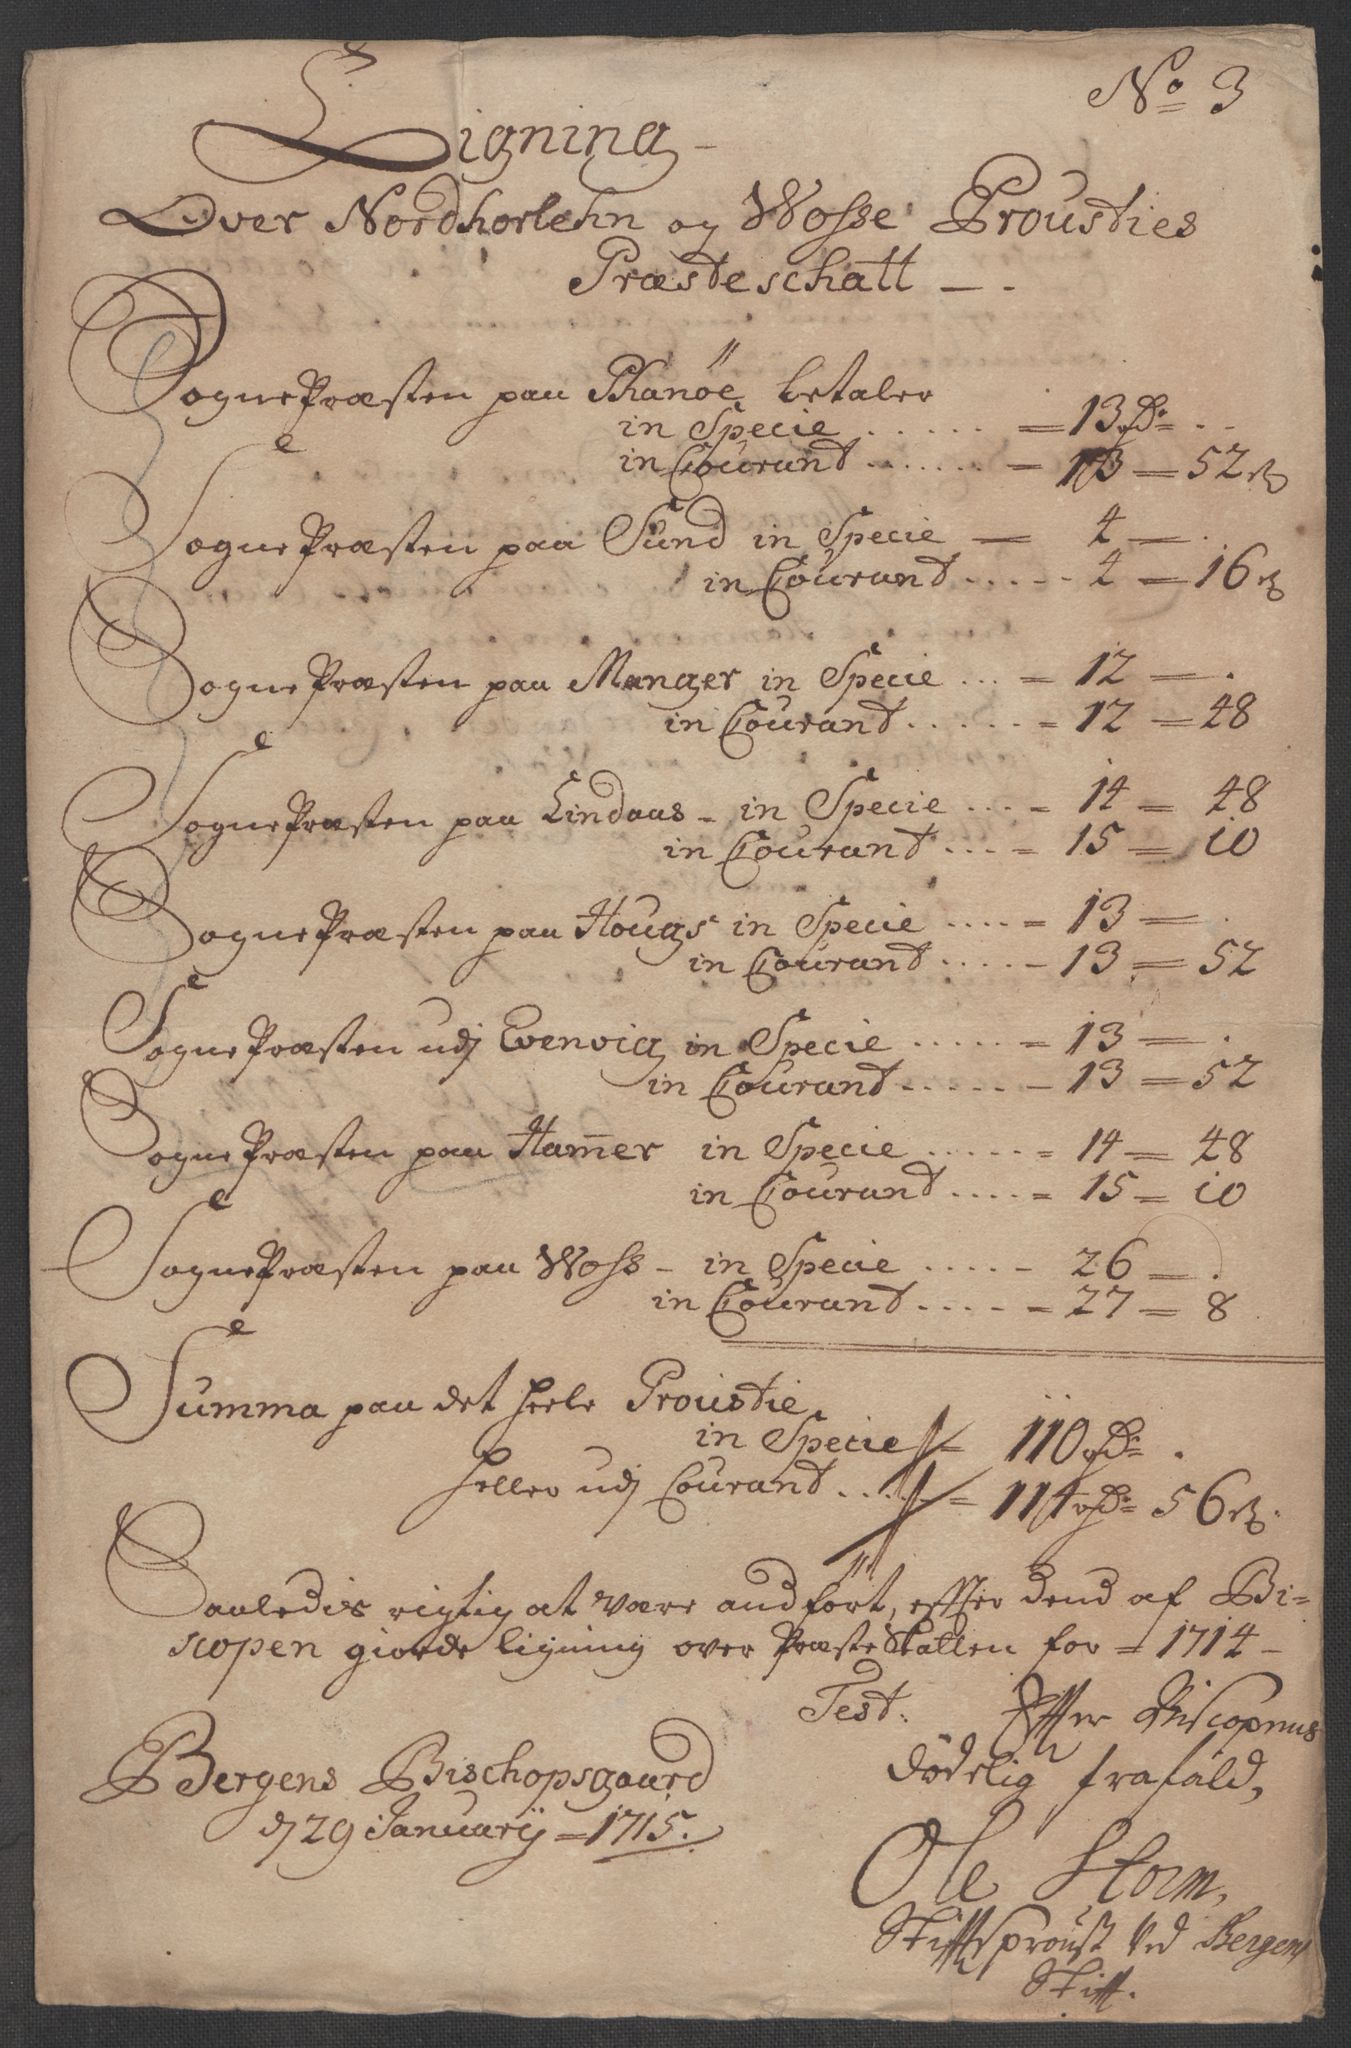 No 3
Ligning
Over Nordhorlehn og Wosse Prousties
Præsteschatt
SognePræsten paa Phanöe betaler
in Specie ...... = 13 Rdr ..
in Courant ....... = 13 = 52 s
SognePræsten paa Sund in Specie = 4 = .
in Courant ..... 4 = 16 s
SognePræsten paa Manger in Specie ... = 12 = .
in Courant ..... = 12 = 48
SognePræsten paa Lindaas - in Specie .... = 14 = 48
in Courant .... = 15 = 10
SognePræsten paa Hougs in Specie ..... = 13 = .
in Courant ..... = 13 = 52
SognePræsten udj Evenvig in Specie ..... = 13 = .
in Courant ..... = 13 = 52
SognePræsten paa Ham̄er in Specie ...... = 14 = 48
in Courant ..... = 15 = 10
SognePræsten paa Woss - in Specie ..... 26 = .
in Courant ..... = 27 = 8
Summa paa det heele Proustie
in Specie = 110 Rdr .
heller udj Courant .... = 114 Rdr 56 s.
Saaledis rigtig at være andfört, effter dend af Bi=
scopen giorde ligning over PræsteSkatten for = 1714 -
Test. Effter Biscopens
dödelig frafald,
Bergens Bischopsgaard
d 29 Januarij = 1715.
Ole Storm,
Stifftsproust ved Bergens
Stifft.